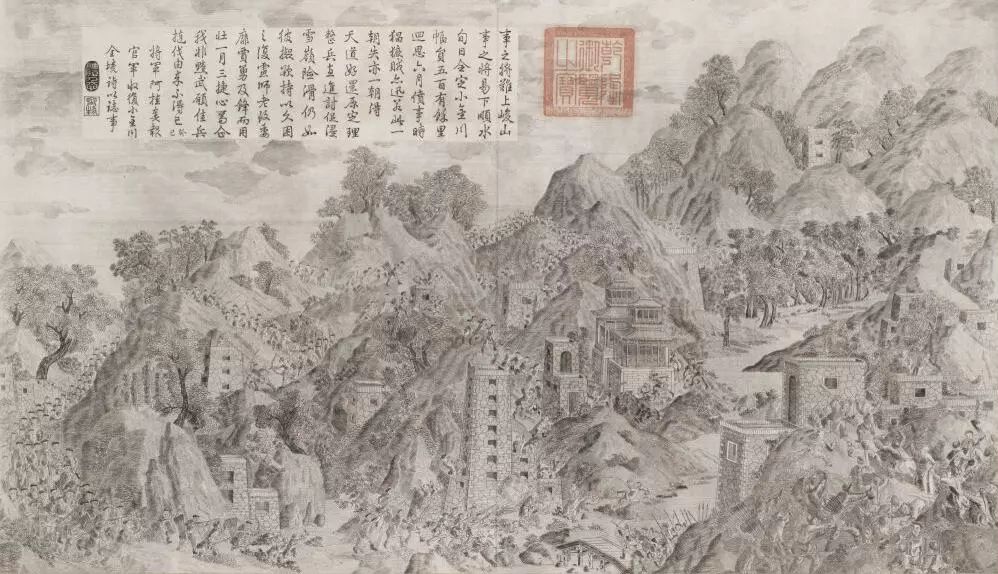 事之將難上峻山
事之將易下順水
旬日全定小金川
幅員五百有餘里
迴思六月僨事時
猖獗賊亦迅若此一
朝失亦一朝得
天道好還原定理
整兵直進討促浸
雪嶺險滑仍如
彼擬欲持以久困
之復慮師老致委
靡賈勇及鋒而用
壯一月三捷心
我非黷武願佳兵
撻伐由來不得已
將軍阿桂奏報
官軍收復小金川
全境詩以誌事
乾隆御覽之寶